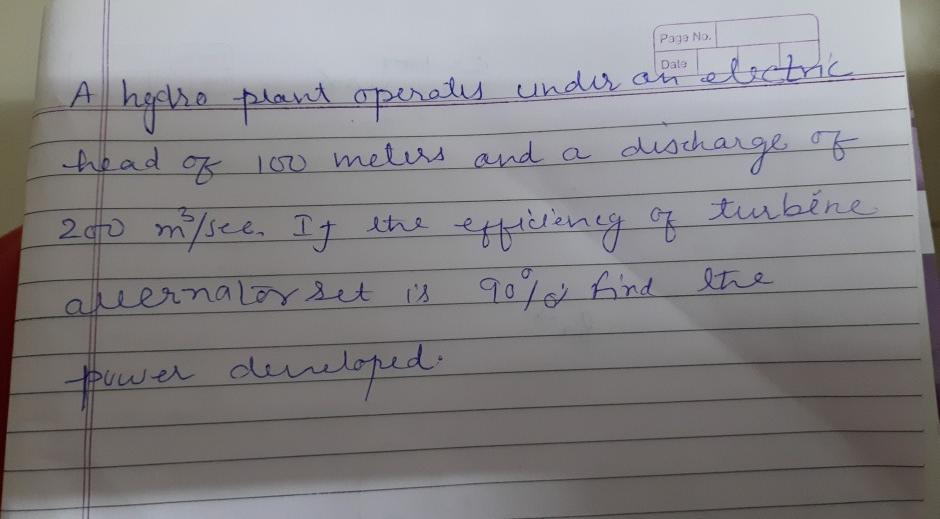 Page No.
Date
A hydro plant operates under an electric
head of 100 meters and a discharge of
200 m³/sec. If the efficiency of turbine
alternator set is 90% find the
power developed.